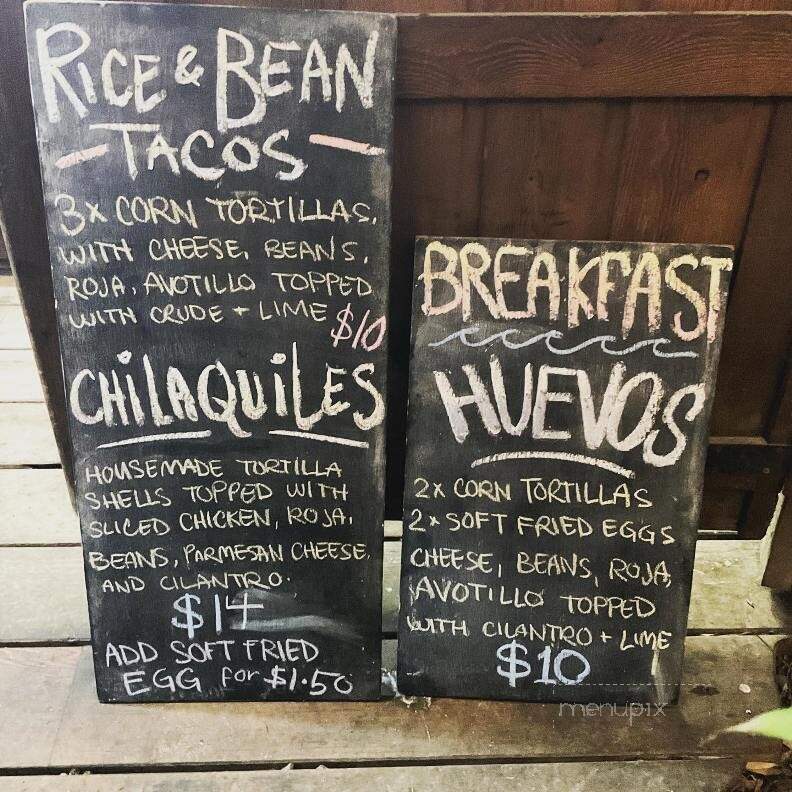 RICE & BEAN
- TACOS -
3x CORN TORTILLAS,
WITH CHEESE, BEANS,
ROJA, AVOTILLO TOPPED
WITH CRUDE + LIME $10
CHILAQUILES
HOUSEMADE TORTILLA
SHELLS TOPPED WITH
SLICED CHICKEN, ROJA,
BEANS, PARMESAN CHEESE,
AND CILANTRO.
$14
ADD SOFT FRIED
EGG FOR $1.50
BREAKFAST
HUEVOS
2x CORN TORTILLAS
2x SOFT FRIED EGGS
CHEESE, BEANS, ROJA,
AVOTILLO TOPPED
WITH CILANTRO + LIME
$10
menupix